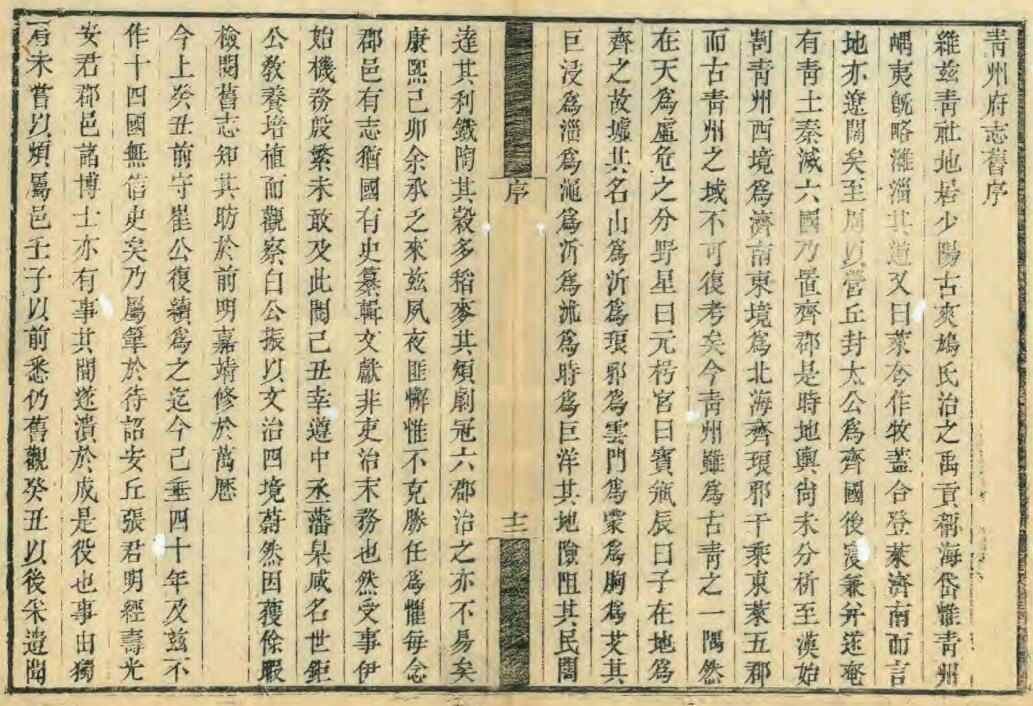 青州府志舊序
維兹青社地居少陽古爽鳩氏治之禹貢稱海岱惟青州
嵎夷旣略濰淄其道又曰萊夷作牧蓋合登萊濟南而言
地亦遼闊矣至周以營丘封太公爲齊國後寖兼并遂奄
有青土秦滅六國乃置齊郡是時地輿尙未分析至漢始
割青州西境爲濟南東境爲北海齊琅邪千乘東萊五郡
而古青州之域不可復考矣今青州雖爲古青之一隅然
在天爲虛危之分野星曰元枵宫曰寶瓶辰曰子在地爲
齊之故墟其名山爲沂爲琅邪爲雲門爲蒙爲朐爲艾其
巨浸爲淄爲澠爲沂爲沭爲時爲巨洋其地險阻其民闊
序
十三
達其利鐵陶其穀多稻麥其煩劇冠六郡治之亦不易矣
康熙己卯余承乏來兹夙夜匪懈惟不克勝任爲懼每念
郡邑有志猶國有史纂輯文獻非吏治末務也然受事伊
始機務殷繁未敢及此閱己丑幸遵中丞藩臬咸名世鉅
公敎養培植而觀察白公振以文治四境蔚然因獲餘暇
檢閱舊志知其昉於前明嘉靖修於萬厯
今上癸丑前守崔公復續爲之迄今已垂四十年及兹不
作十四國無信史矣乃屬筆於待詔安丘張君明經壽光
安君郡邑諸博士亦有事其間遂潰於成是役也事由獨
肩未嘗以煩屬邑壬子以前悉仍舊觀癸丑以後采遺聞